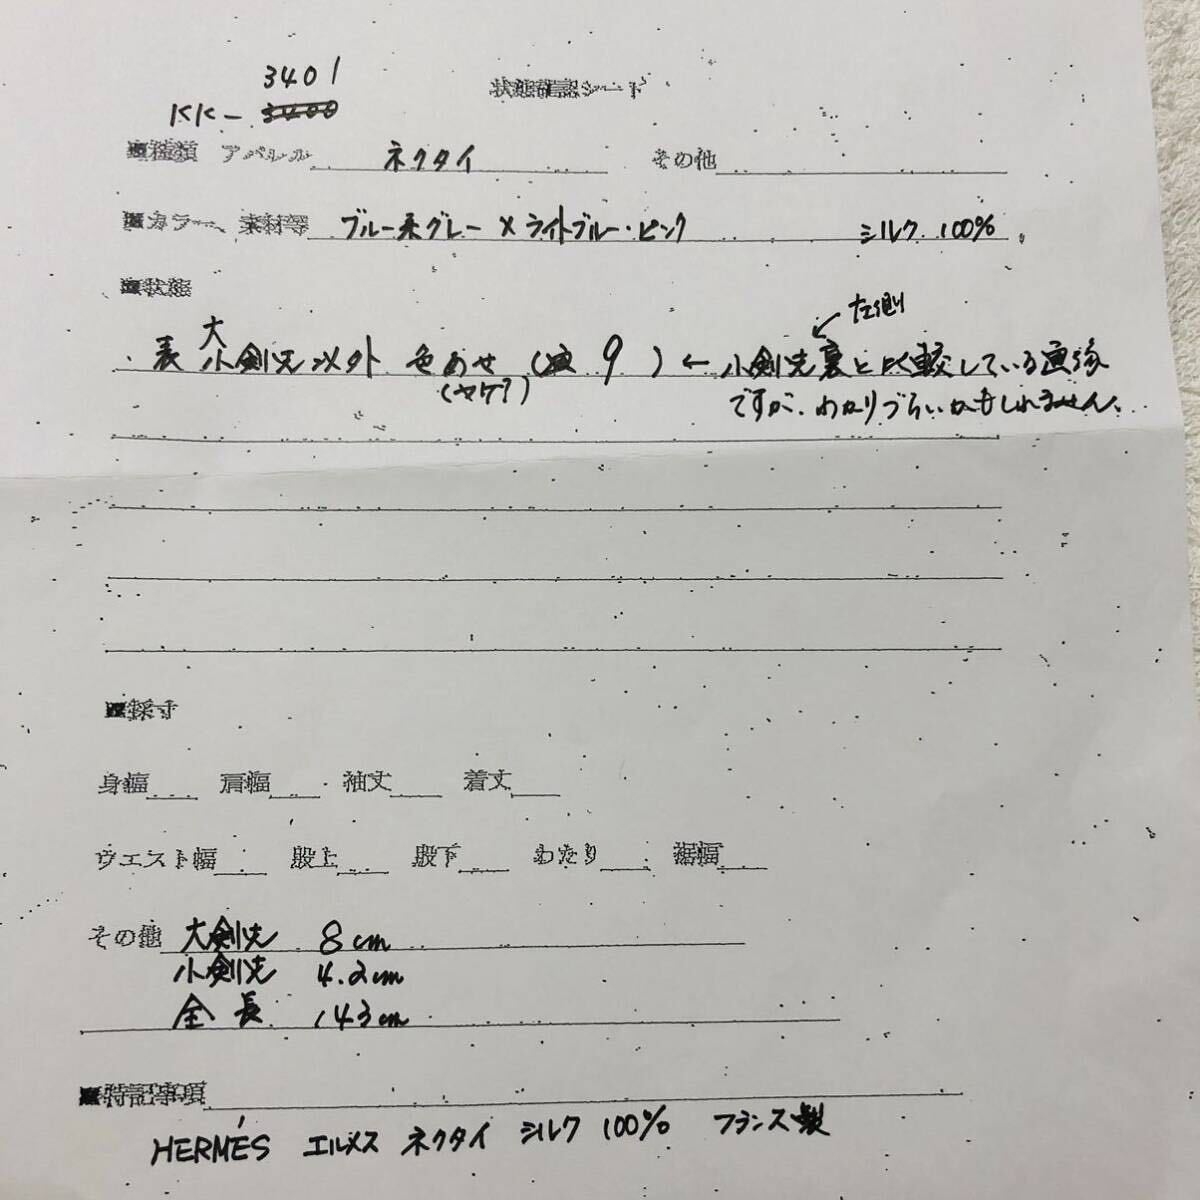 3401
状態確認シート
KK- 3400
■種類 アパレル ネクタイ その他
■カラー、素材等 ブルー系グレー×ライトブルー・ピンク シルク 100%
■状態
左側
大
・表 小剣先以外 色あせ ( 9 ) ← 小剣先裏と比較している画像
(ヤケ?) ですが、わかりづらいかもしれません。
■採寸
身幅 肩幅 袖丈 着丈
ウエスト幅 股上 股下 わたり 裾幅
その他 大剣先 8cm
小剣先 4.2cm
全長 143cm
■特記事項
HERMÉS エルメス ネクタイ シルク 100% フランス製